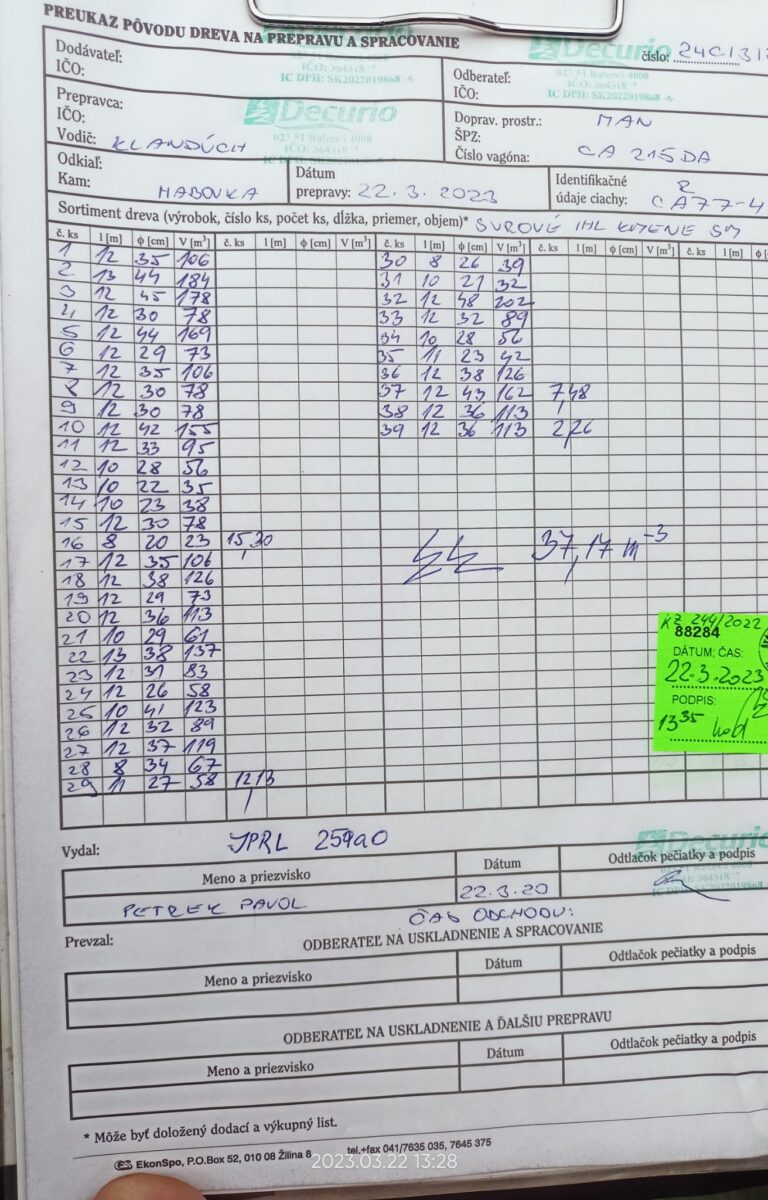 PREUKAZ PÔVODU DREVA NA PREPRAVU A SPRACOVANIE
Decurio
číslo: 24C131
Dodávateľ:
IČO:
IC DPH: SK2022019868
Odberateľ:
IČO:
IC DPH: SK2022019868
Prepravca:
IČO:
Vodič: KLANDÚCH
Decurio
023 51 Raková 4000
Doprav. prostr.: MAN
ŠPZ:
Číslo vagóna: CA 215DA
Odkiaľ:
Kam: HABOVKA
Dátum
prepravy: 22. 3. 2023
Identifikačné
údaje ciachy: CA77-4
Sortiment dreva (výrobok, číslo ks, počet ks, dĺžka, priemer, objem)* SUROVÉ IHL KMENE SM
č. ks l [m] ϕ [cm] V [m³] č. ks l [m] ϕ [cm] V [m³] č. ks l [m] ϕ [cm] V [m³] č. ks l [m] ϕ [cm] V [m³] č. ks l [m]
1 12 35 106 30 8 26 39
2 13 44 184 31 10 21 32
3 12 45 178 32 12 48 202
4 12 30 78 33 12 32 89
5 12 44 169 34 10 28 56
6 12 29 73 35 11 23 42
7 12 35 106 36 12 38 126
8 12 30 78 37 12 43 162 7,48
9 12 30 78 38 12 36 113
10 12 42 155 39 12 36 113 2,26
11 12 33 95
12 10 28 56
13 10 22 35
14 10 23 38
15 12 30 78
16 8 20 23 15,30 37,17 m⁻³
17 12 35 106
18 12 38 126
19 12 29 73
20 12 36 113
21 10 29 61
22 13 38 137
23 12 31 83
24 12 26 58
25 10 41 123
26 12 32 89
27 12 37 119
28 8 34 67
29 11 27 58 12,13
KZ 244/2022
88284
DÁTUM: ČAS:
22.3.2023
PODPIS:
13 35 hod
Vydal: JPRL 259a0
Meno a priezvisko Dátum Odtlačok pečiatky a podpis
PETREK PAVOL 22.3.20
Decurio
Prevzal: ČAS ODCHODU:
ODBERATEĽ NA USKLADNENIE A SPRACOVANIE
Meno a priezvisko Dátum Odtlačok pečiatky a podpis
ODBERATEĽ NA USKLADNENIE A ĎALŠIU PREPRAVU
Meno a priezvisko Dátum Odtlačok pečiatky a podpis
* Môže byť doložený dodací a výkupný list.
EkonSpo, P.O.Box 52, 010 08 Žilina 8 tel.+fax 041/7635 035, 7645 375
2023.03.22 13:28